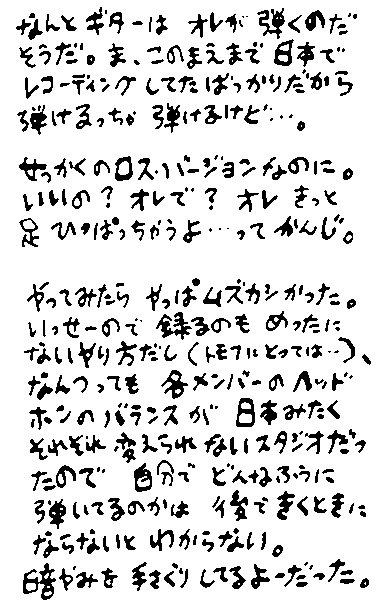 なんと ギターは オレが 弾くのだ
そうだ。ま、このまえまで 日本で
レコーディングしてたばっかりだから
弾けるっちゃ 弾けるけど…。
せっかくのロス・バージョンなのに。
いいの？ オレで？ オレ きっと
足 ひっぱっちゃうよ…って かんじ。
やってみたら やっぱムズカシかった。
いっせーので 録るのも めったに
ないやり方だし（トモフルとっては…）、
なんつっても 各メンバーの ヘッド
ホンの バランスが 日本みたく
それぞれ 変えられ ないスタジオだっ
たので 自分で どんなふうに
弾いてるのかは 後で きくときに
ならないと わからない。
暗やみを 手さぐり してるよーだった。